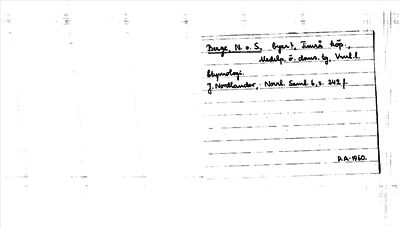 Berge, N. o. S., byar i, Timrå köp.,
Medelp. ö. doms. lg, Vnrl. l.
Etymologi.
J. Nordlander, Norrl. Saml. 6, s. 242 f.
A.A. 1960.